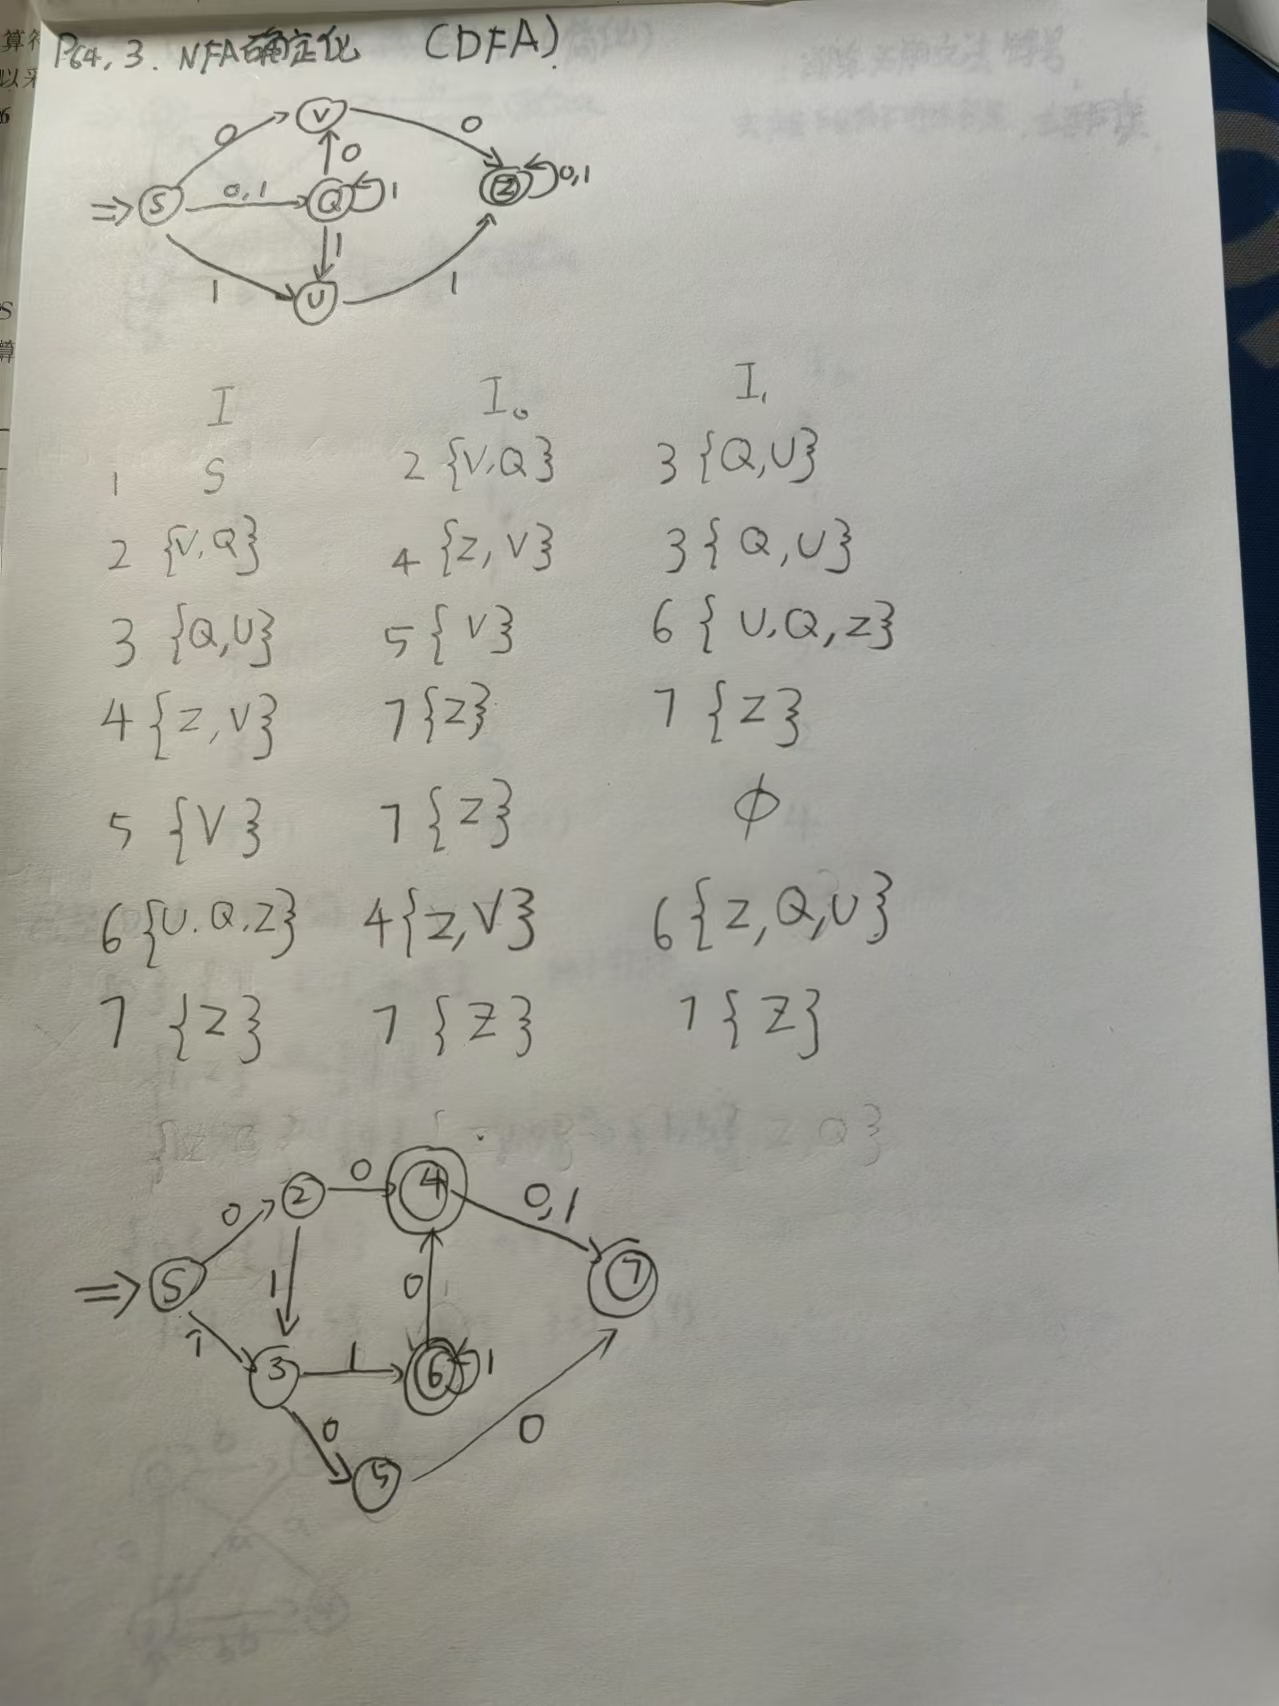 P64, 3. NFA确定化 (DFA)
0 V 0
0
⇒ S 0,1 Q 1 Z 0,1
1
1 U 1
I I₀ I₁
1 S 2 {V,Q} 3 {Q,U}
2 {V,Q} 4 {Z,V} 3 {Q,U}
3 {Q,U} 5 {V} 6 {U,Q,Z}
4 {Z,V} 7 {Z} 7 {Z}
5 {V} 7 {Z} ϕ
6 {U,Q,Z} 4 {Z,V} 6 {Z,Q,U}
7 {Z} 7 {Z} 7 {Z}
0 2 0 4 0,1
⇒ S 1 0 7
1 3 1 6 1
0 0
5